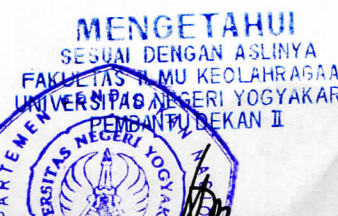 MENGETAHUI
SESUAI DENGAN ASLINYA
FAKULTAS ILMU KEOLAHRAGAA
UNIVERSITAS NEGERI YOGYAKAR
PEMBANTU DEKAN II
NEGERI YOGYA